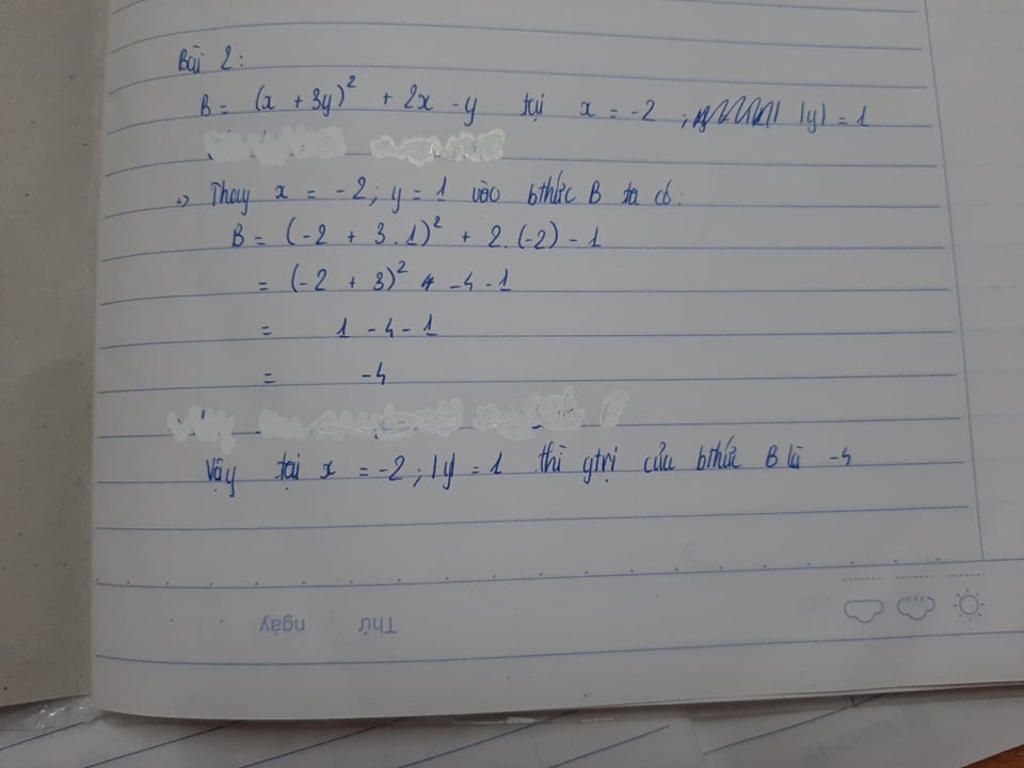 Bài 2:
B = (x + 3y)² + 2x - y tại x = -2 ; |y| = 1
Thay x = -2; y = 1 vào bthức B ta có:
B = (-2 + 3.1)² + 2.(-2) - 1
= (-2 + 3)² -4 -1
= 1 - 4 - 1
= -4
Vậy tại x = -2 ; |y = 1 thì gtrị của bthức B là -4
Thứ ngày